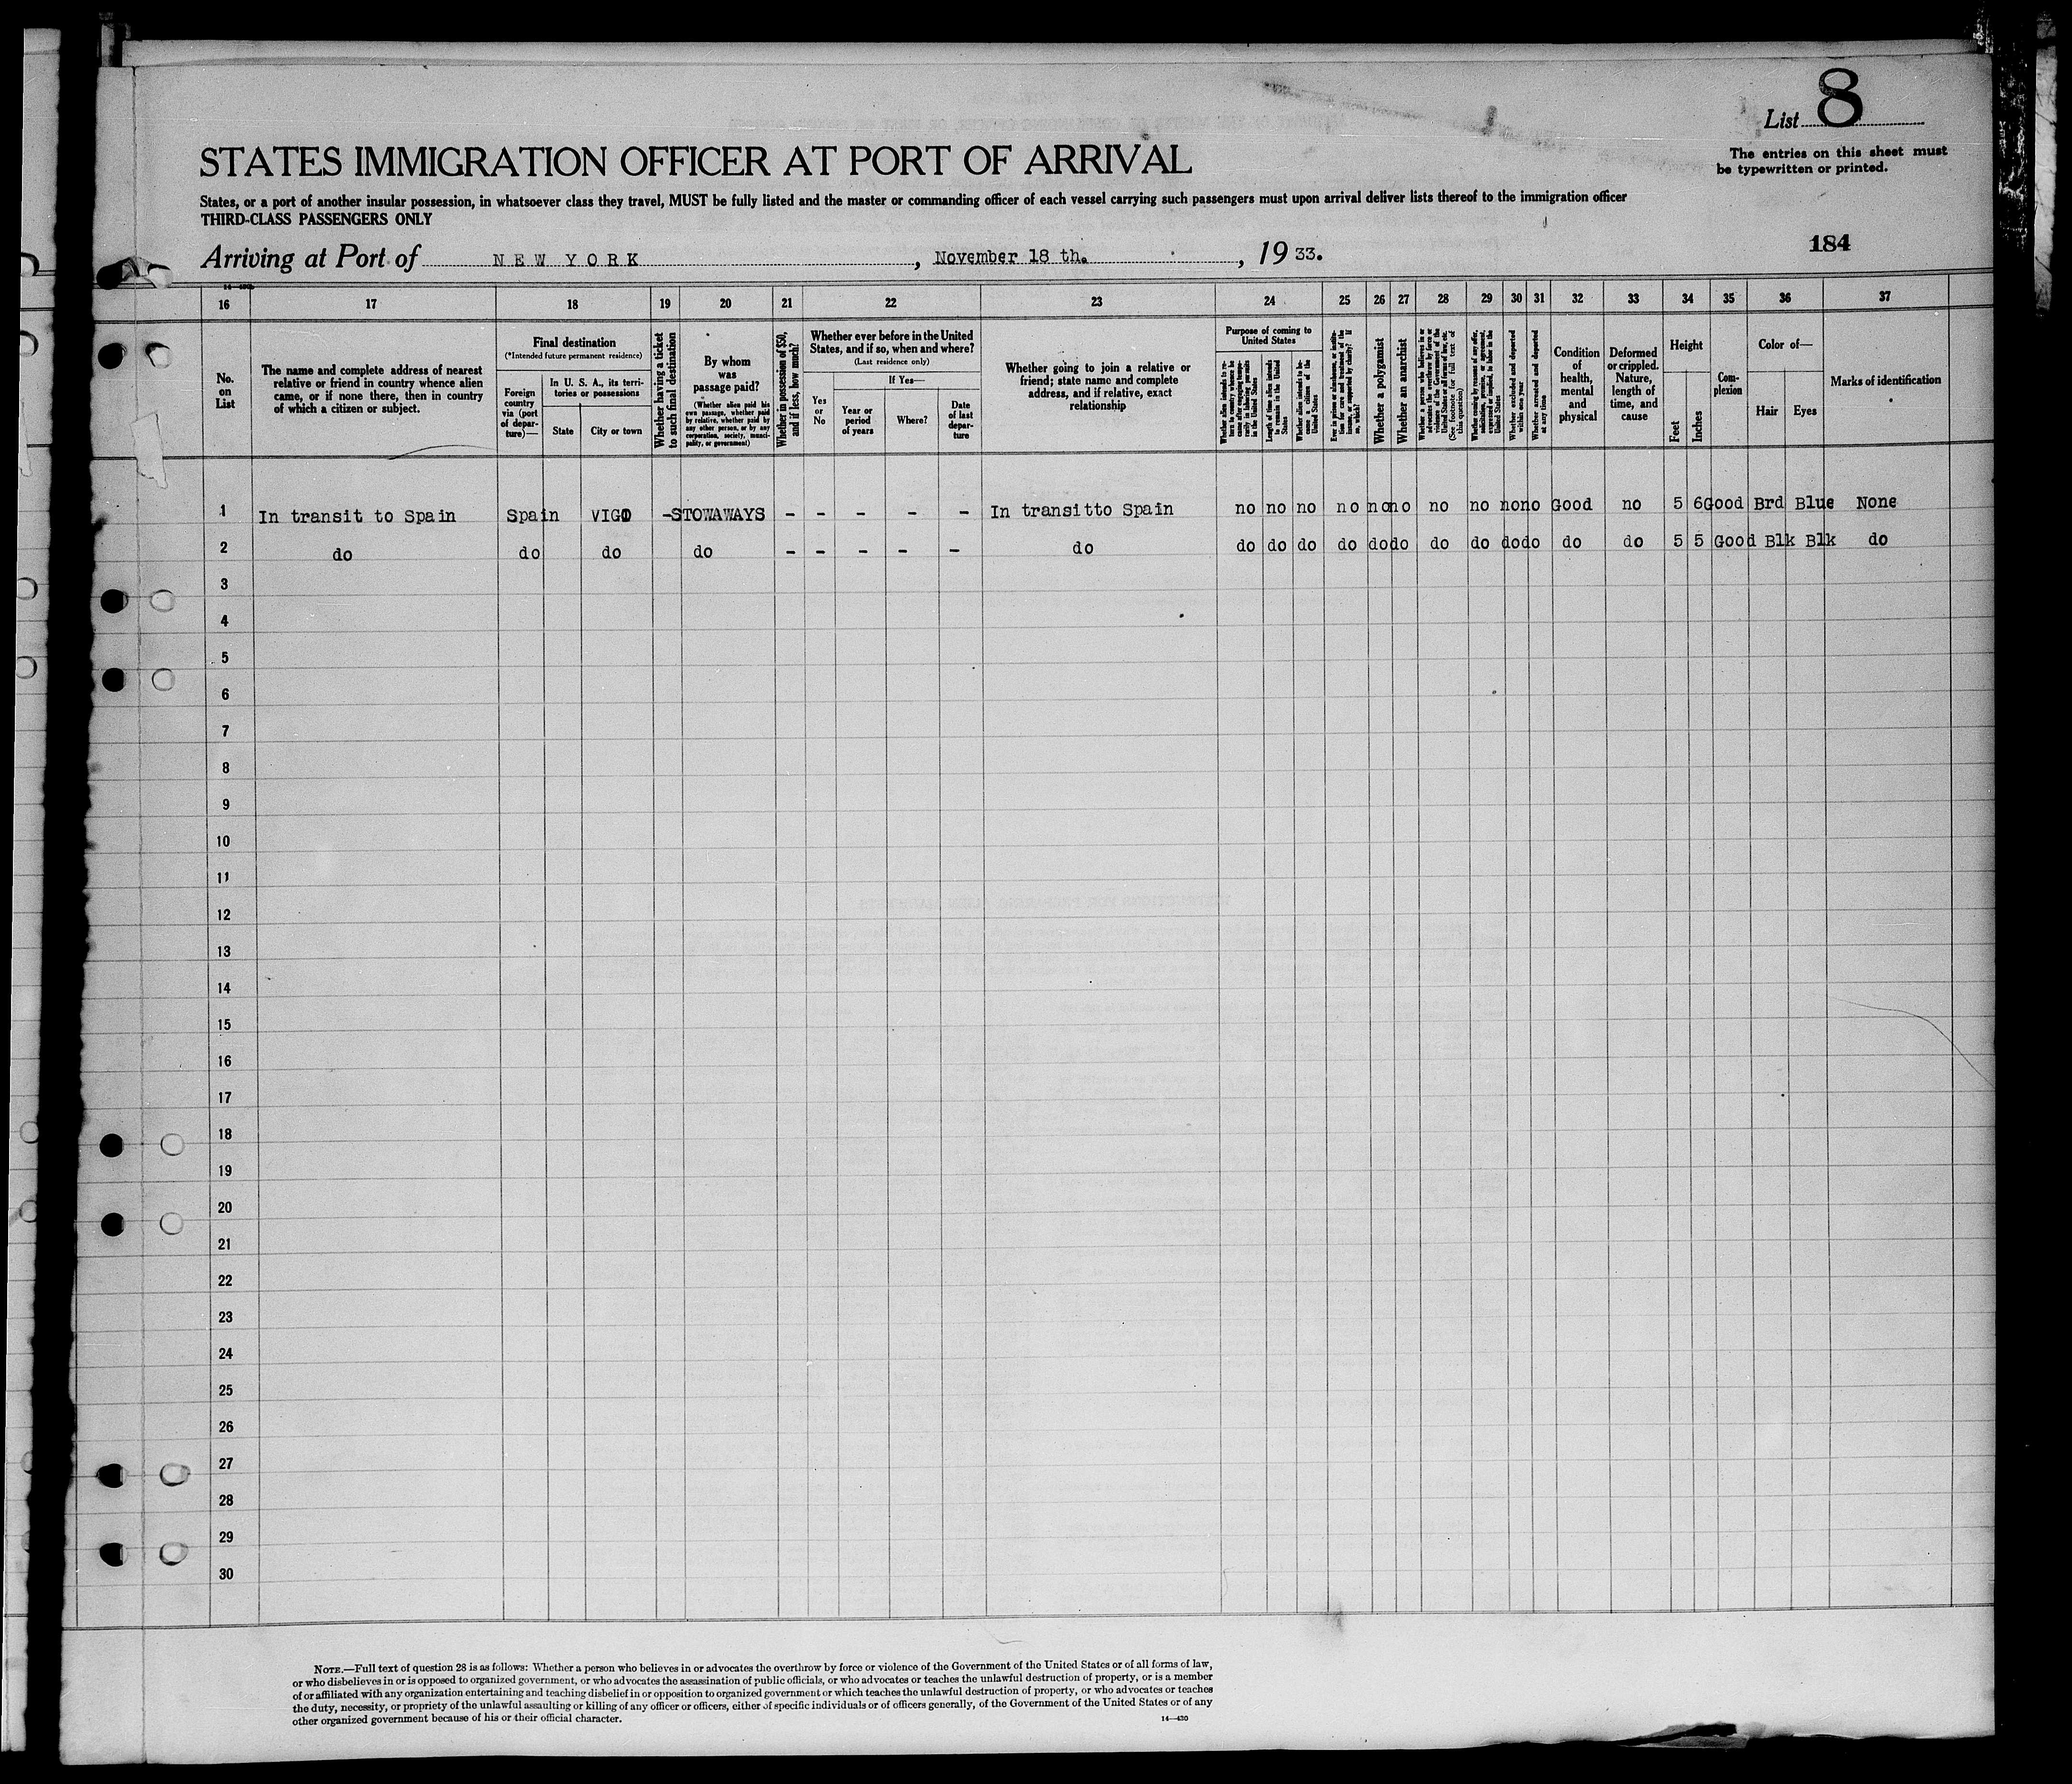 List 8
The entries on this sheet must
be typewritten or printed.
STATES IMMIGRATION OFFICER AT PORT OF ARRIVAL
States, or a port of another insular possession, in whatsoever class they travel, MUST be fully listed and the master or commanding officer of each vessel carrying such passengers must upon arrival deliver lists thereof to the immigration officer
THIRD-CLASS PASSENGERS ONLY
184
Arriving at Port of NEW YORK, November 18 th., 19 33.
16 17 18 19 20 21 22 23 24 25 26 27 28 29 30 31 32 33 34 35 36 37
No.
on
List
The name and complete address of nearest
relative or friend in country whence alien
came, or if none there, then in country
of which a citizen or subject.
Final destination
(*Intended future permanent residence)
Foreign
country
via (port
of depar-
ture)—
In U. S. A., its terri-
tories or possessions
State City or town
Whether having a ticket
to such final destination
By whom
was
passage paid?
(Whether alien paid his
own passage, whether paid
by relative, whether paid by
any other person, or by any
corporation, society, munici-
pality, or government)
Whether in possession of $50,
and if less, how much?
Whether ever before in the United
States, and if so, when and where?
(Last residence only)
Yes
or
No
If Yes—
Year or
period
of years
Where?
Date
of last
depar-
ture
Whether going to join a relative or
friend; state name and complete
address, and if relative, exact
relationship
Purpose of coming to
United States
Length of time alien intends
to remain in the United
States
Whether alien intends to be-
come a citizen of the
United States
Whether a polygamist
Whether an anarchist
Whether excluded and deported
within one year
Whether arrested and deported
at any time
Condition
of
health,
mental
and
physical
Deformed
or crippled.
Nature,
length of
time, and
cause
Height
Feet Inches
Com-
plexion
Color of—
Hair Eyes
Marks of identification
1 In transit to Spain Spain VIGO -STOWAWAYS - - - - - In transitto Spain no no no no no no no no no no Good no 5 6 Good Brd Blue None
2 do do do do - - - - - do do do do do do do do do do do do do 5 5 Good Blk Blk do
3
4
5
6
7
8
9
10
11
12
13
14
15
16
17
18
19
20
21
22
23
24
25
26
27
28
29
30
NOTE.—Full text of question 28 is as follows: Whether a person who believes in or advocates the overthrow by force or violence of the Government of the United States or of all forms of law,
or who disbelieves in or is opposed to organized government, or who advocates the assassination of public officials, or who advocates or teaches the unlawful destruction of property, or is a member
of or affiliated with any organization entertaining and teaching disbelief in or opposition to organized government or which teaches the unlawful destruction of property, or who advocates or teaches
the duty, necessity, or propriety of the unlawful assaulting or killing of any officer or officers, either of specific individuals or of officers generally, of the Government of the United States or of any
other organized government because of his or their official character.
14—430